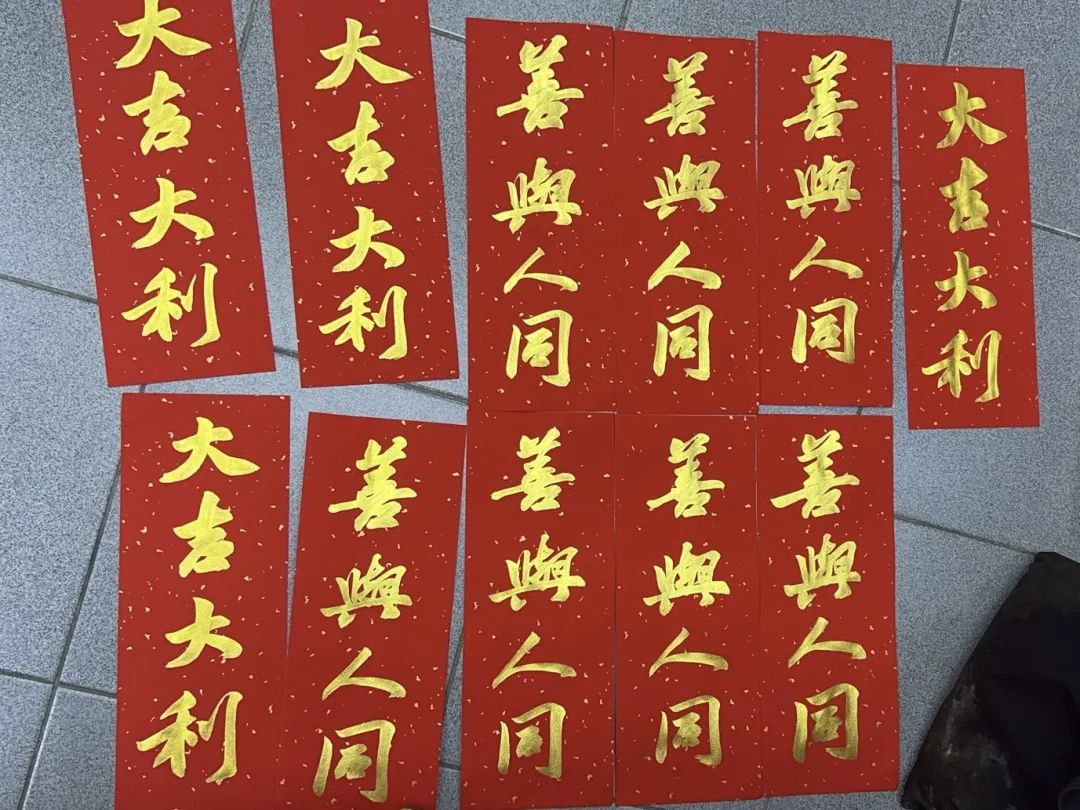 大吉大利
大吉大利
善與人同
善與人同
善與人同
大吉大利
大吉大利
善與人同
善與人同
善與人同
善與人同